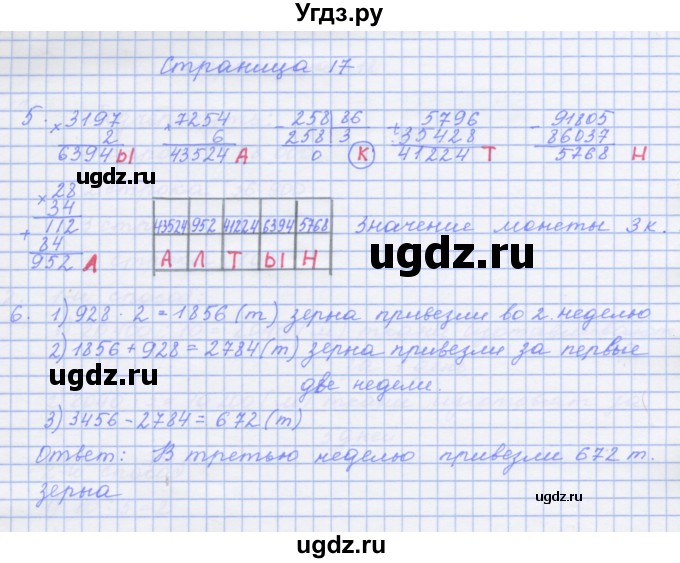 Угдз.ру
Страница 17
5. × 3197 × 7254 - 258 | 86 + 5796 - 91805
2 6 258 | 3 35428 86037
6394 Ы 43524 А 0 К 41224 Т 5768 Н
ugdz.ru
× 28
34
+ 112
84
952 Л
43524 952 41224 6394 5768
А Л Т Ы Н
Значение монеты 3 к.
ugdz.ru
6. 1) 928 · 2 = 1856 (т) зерна привезли во 2 неделю
2) 1856 + 928 = 2784 (т) зерна привезли за первые
две недели.
ugdz.ru
3) 3456 - 2784 = 672 (т)
Ответ: В третью неделю привезли 672 т.
зерна
ugdz.ru
ugdz.ru